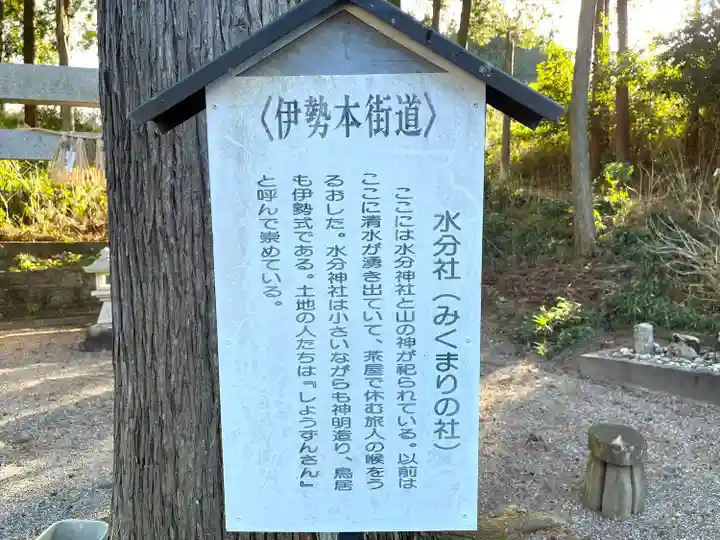 〈伊勢本街道〉
水分社（みくまりの社）
ここには水分神社と山の神が祀られている。以前は
ここに清水が湧き出ていて、茶屋で休む旅人の喉をう
るおした。水分神社は小さいながらも神明造り、鳥居
も伊勢式である。土地の人たちは『しょうずんさん』
と呼んで崇めている。